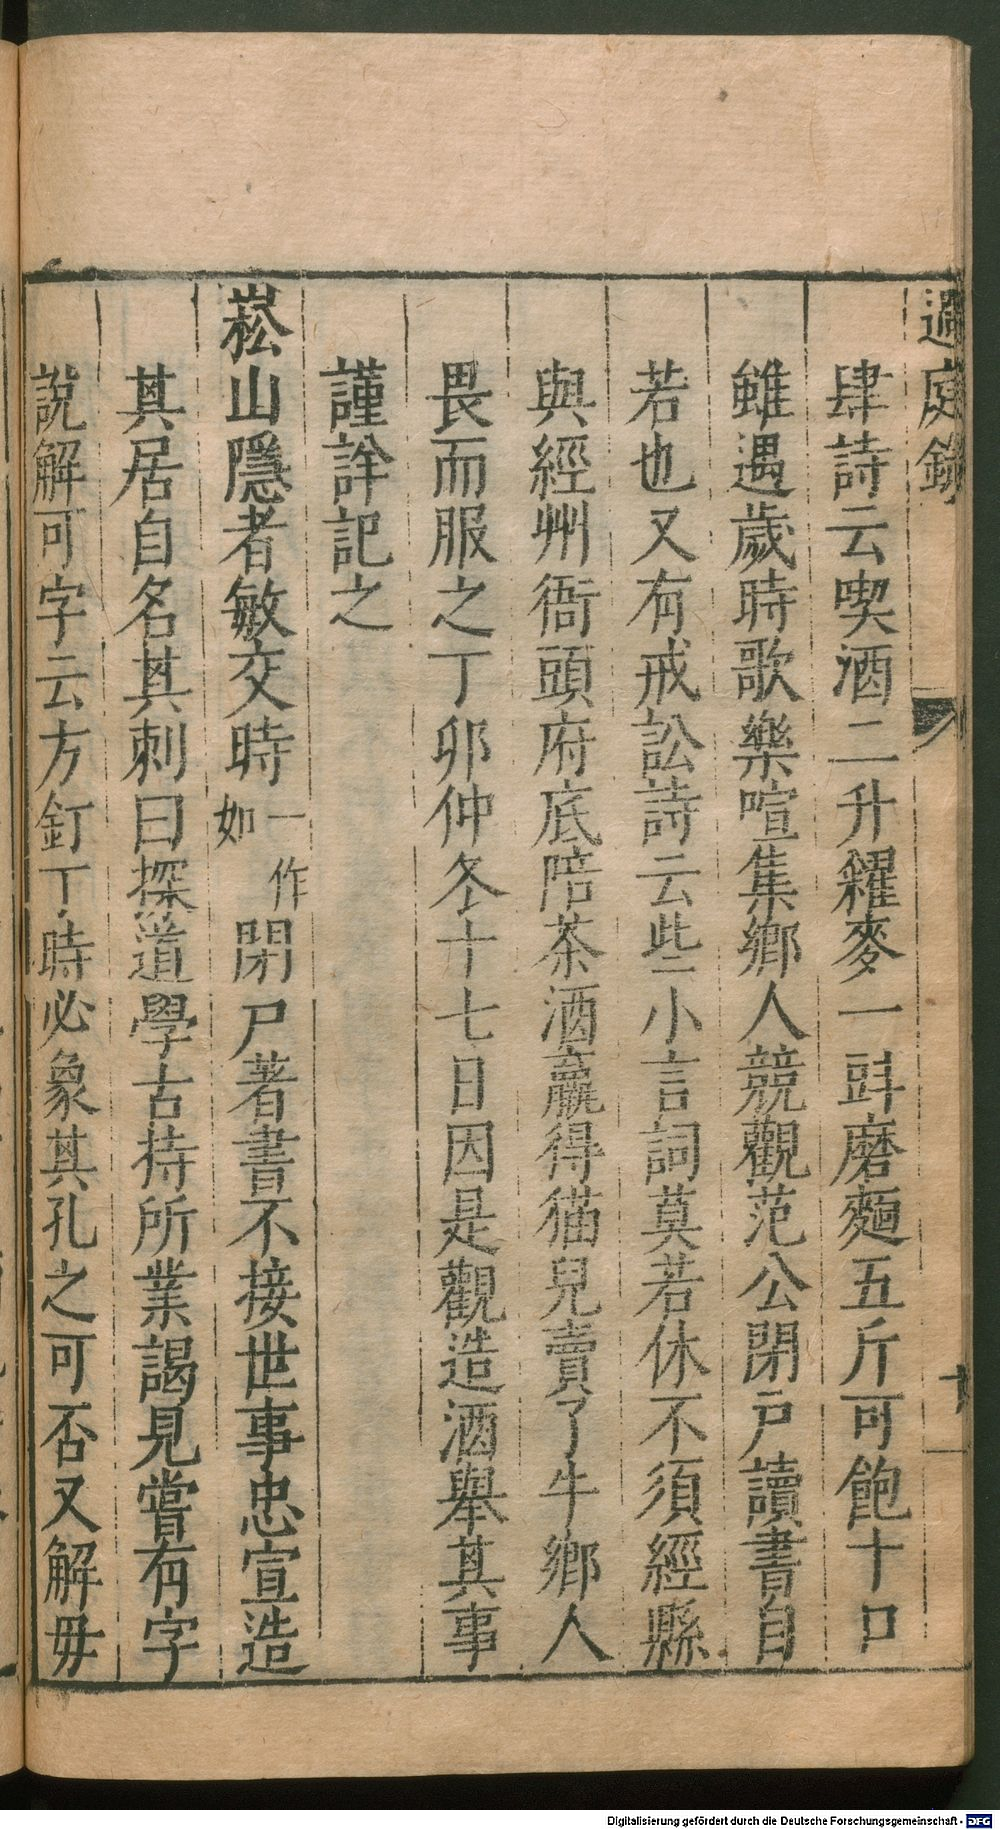 過庭錄
肆詩云喫酒二升糴麥一㪷磨麵五斤可飽十口
雖遇歲時歌樂喧集鄉人競觀范公閉戶讀書自
若也又有戒訟詩云些小言詞莫若休不須經縣
與經州衙頭府底陪茶酒贏得猫兒賣了牛鄉人
畏而服之丁卯仲冬十七日因是觀造酒舉其事
謹詳記之
崧山隱者敏交時一作如閉戶著書不接世事忠宣造
其居自名其刺曰探道學古持所業謁見嘗有字
說解可字云方釘丁時必象其孔之可否又解毋
Digitalisierung gefördert durch die Deutsche Forschungsgemeinschaft - DFG